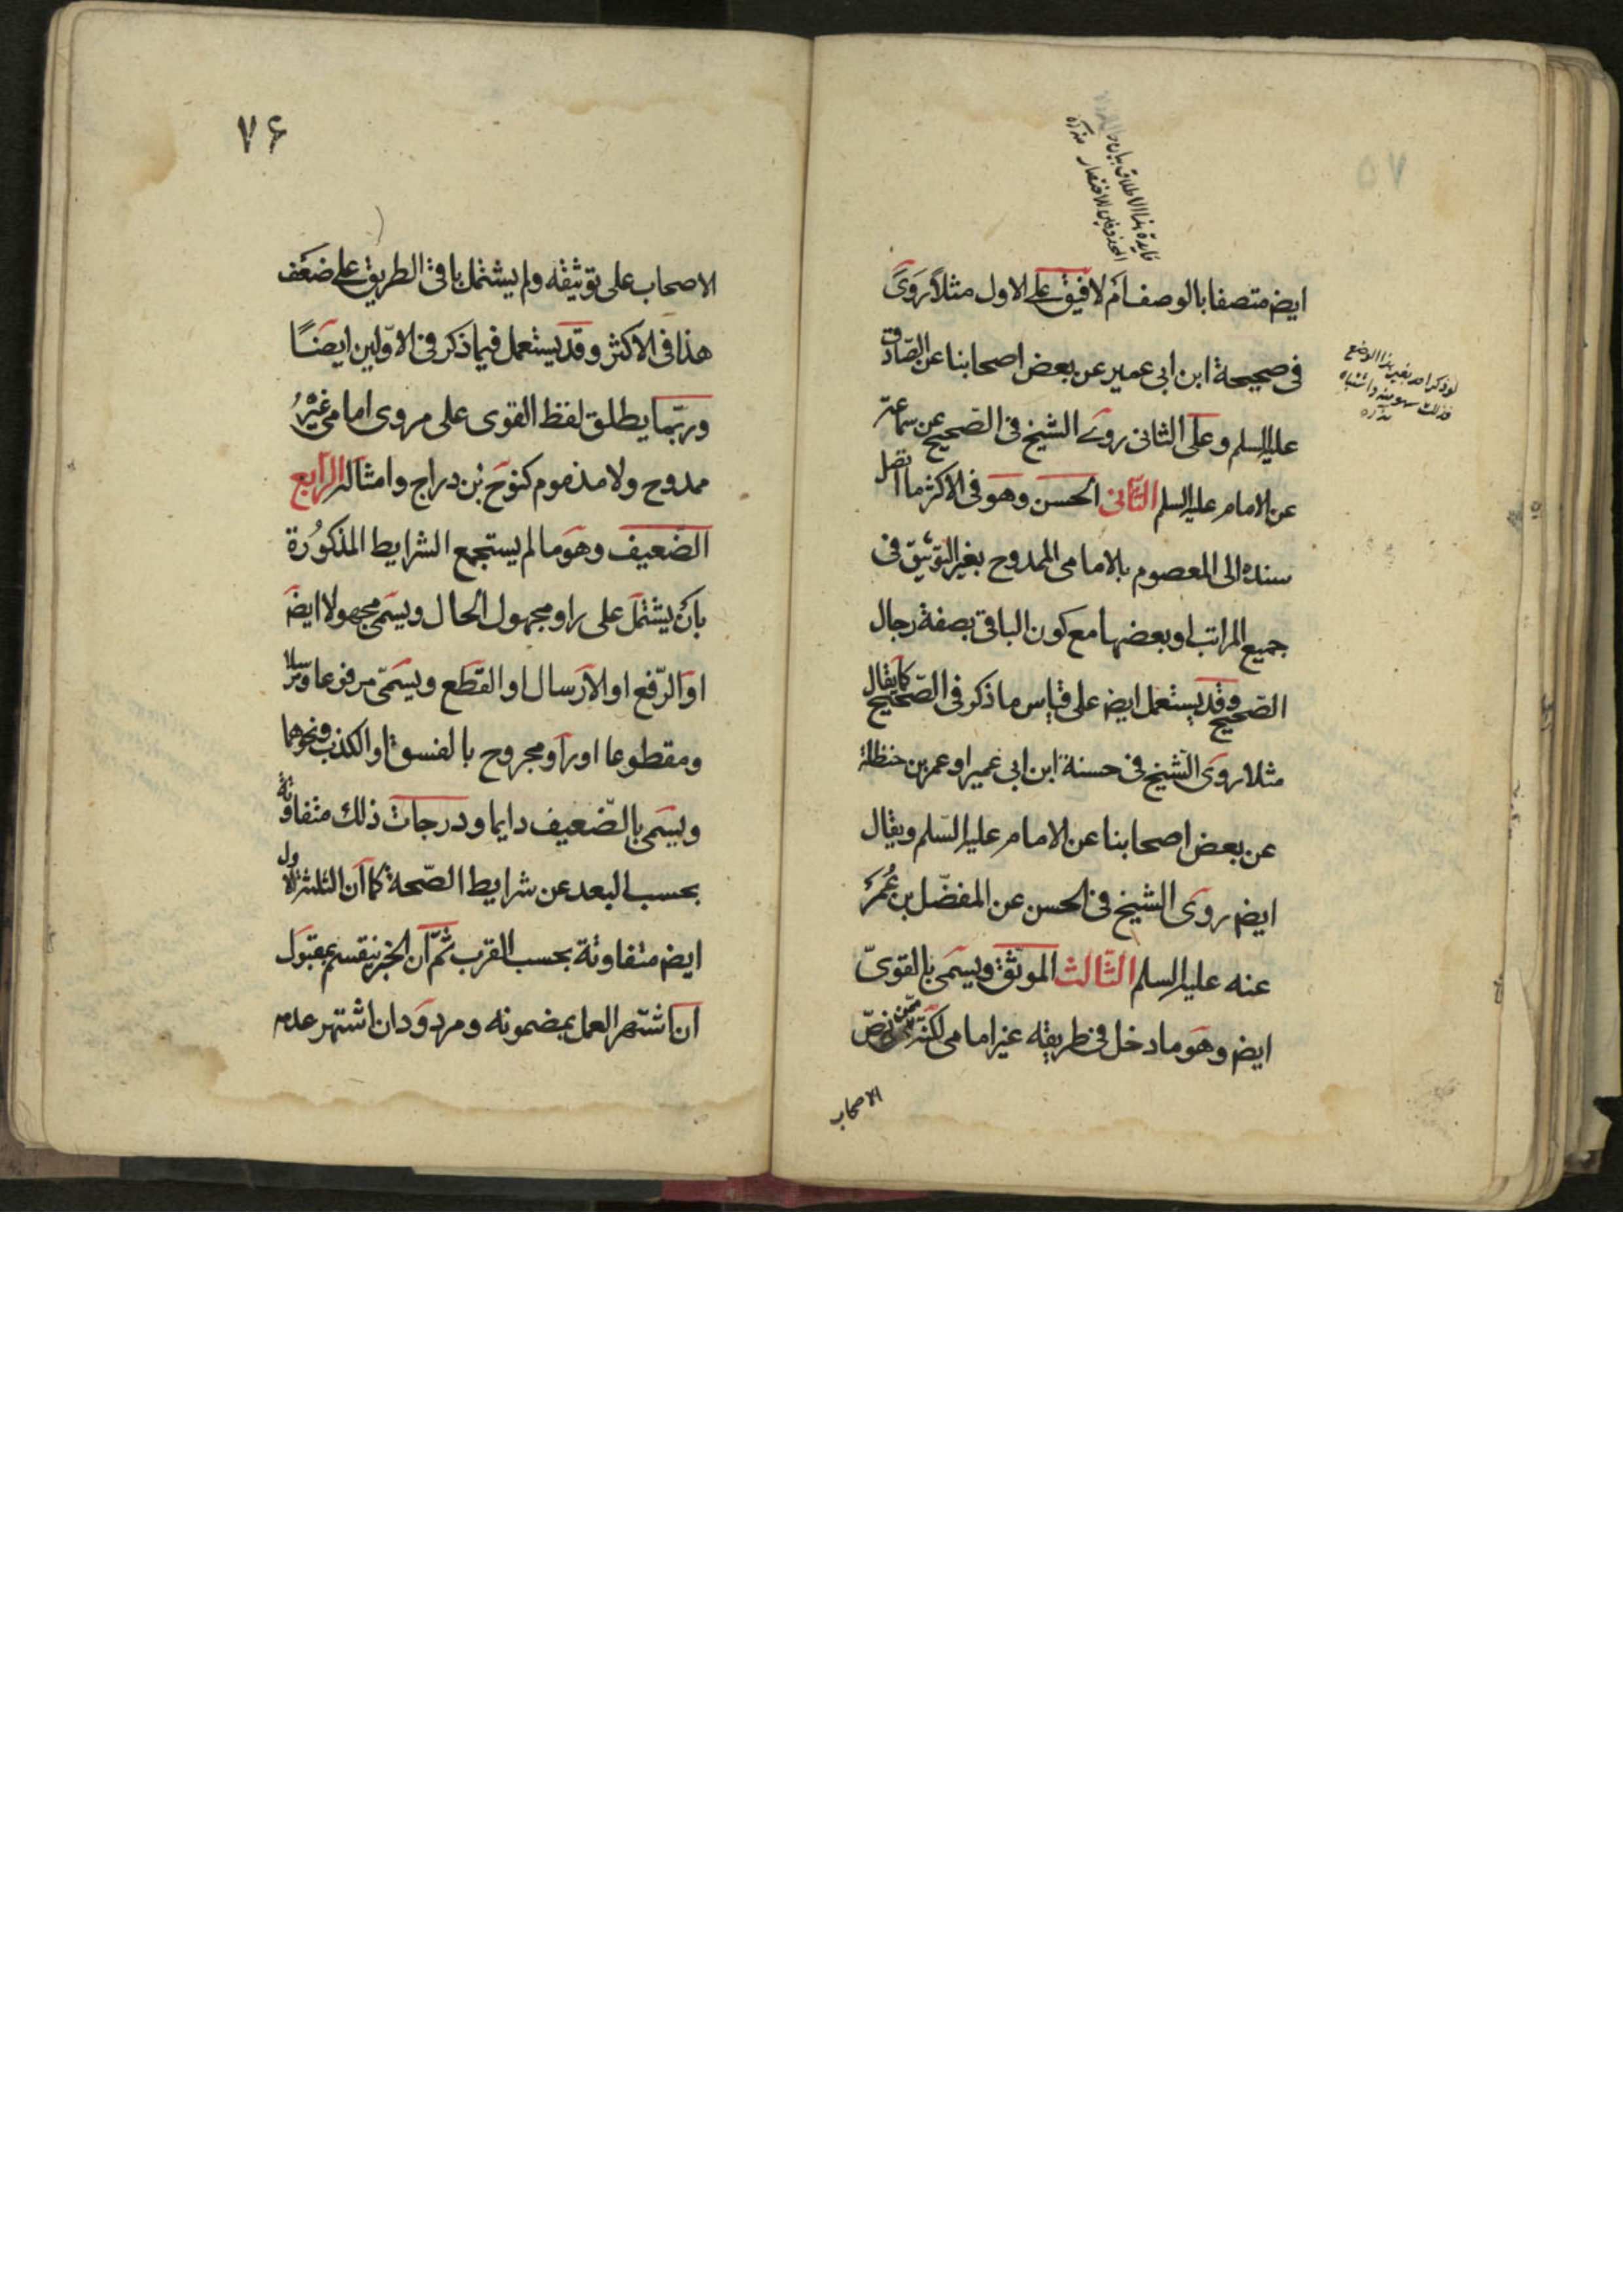 ايض متصفا بالوصف ام لا فيق على الاول مثلا روى
فى صحيحة ابن ابى عمير عن بعض اصحابنا عن الصادق
عليه السلم وعلى الثانى روى الشيخ فى الصحيح عن سماعة
عن الامام عليه السلم الثانى الحسن وهو فى الاكثر ما اتصل
سنده الى المعصوم بالامامى الممدوح بغير التوثيق فى
جميع المراتب او بعضها مع كون الباقى بصفة رجال
الصحيح وقد يستعمل ايض على قياس ما ذكر فى الصحيح كما يقال
مثلا روى الشيخ فى حسنة ابن ابى عمير او عمر بن حنظلة
عن بعض اصحابنا عن الامام عليه السلم ويقال
ايض روى الشيخ فى الحسن عن المفضل بن عمر
عنه عليه السلم الثالث الموثق ويسمى بالقوى
ايض وهو ما دخل فى طريقه غير امامى لكنه ممن نص
الاصحاب
٧۶
الاصحاب على توثيقه ولم يشتمل باقى الطريق على ضعف
هذا فى الاكثر وقد يستعمل فيما ذكر فى الاولين ايضا
وربما يطلق لفظ القوى على مروى امامى غير
ممدوح ولا مذموم كنوح بن دراج وامثاله الرابع
الضعيف وهو ما لم يستجمع الشرايط المذكورة
بان يشتمل على راو مجهول الحال ويسمى مجهولا ايض
او الرفع او الارسال او القطع ويسمى مرفوعا ومرسلا
ومقطوعا او راو مجروح بالفسق او الكذب ونحوهما
ويسمى بالضعيف دايما ودرجات ذلك متفاوتة
بحسب البعد عن شرايط الصحة كما ان الثلثة الاول
ايض متفاوتة بحسب القرب ثم ان الخبر ينقسم بمقبول
ان اشتهر العمل بمضمونه ومردود ان اشتهر عدمه